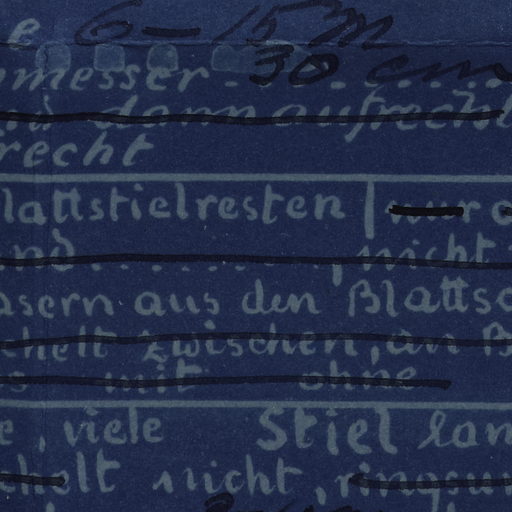 e 6-15 m
messer . . . 30 cm
dann aufrecht
recht
lattstielresten | nur
nd . . . . . . . . , nicht
asern aus den Blatts
chelt zwischen, an B
s mit ohne
e, viele Stiel lan
chelt nicht, ringsu